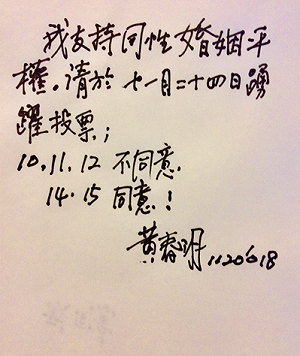 我支持同性婚姻平
權。请於十一月二十四日踴
躍投票;
10.11.12 不同意.
14.15 同意!
黃春明